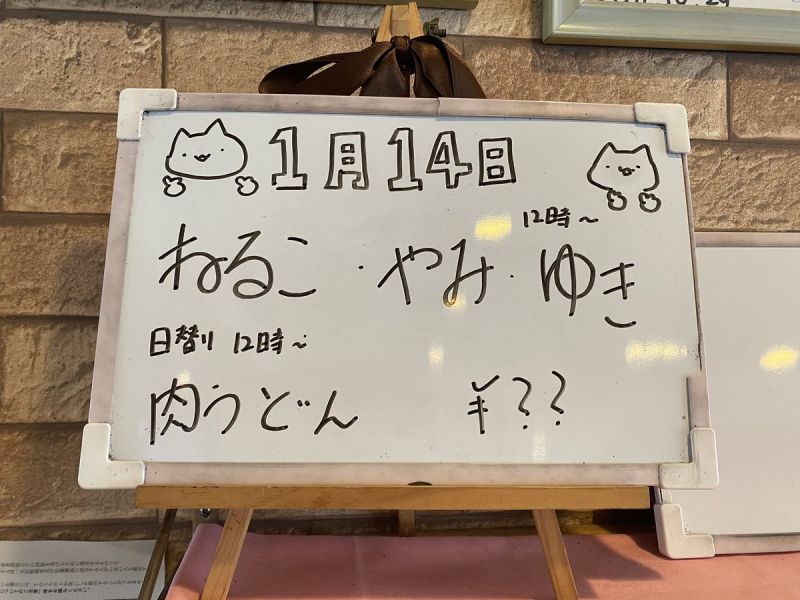 1月14日
12時~
ねるこ・やみ・ゆき
日替り 12時~
肉うどん ¥??